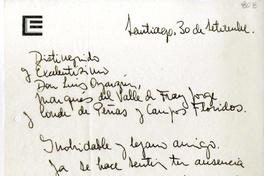 808
Santiago, 30 de Setiembre.
Distinguido
y Exalentísimo
Don Luis Oyarzún,
Marqués del Valle de Fray Jorge
y Conde de Peñas y Campos Floridos.
Inolvidable y lejano amigo.
Ya se hace sentir tu ausencia